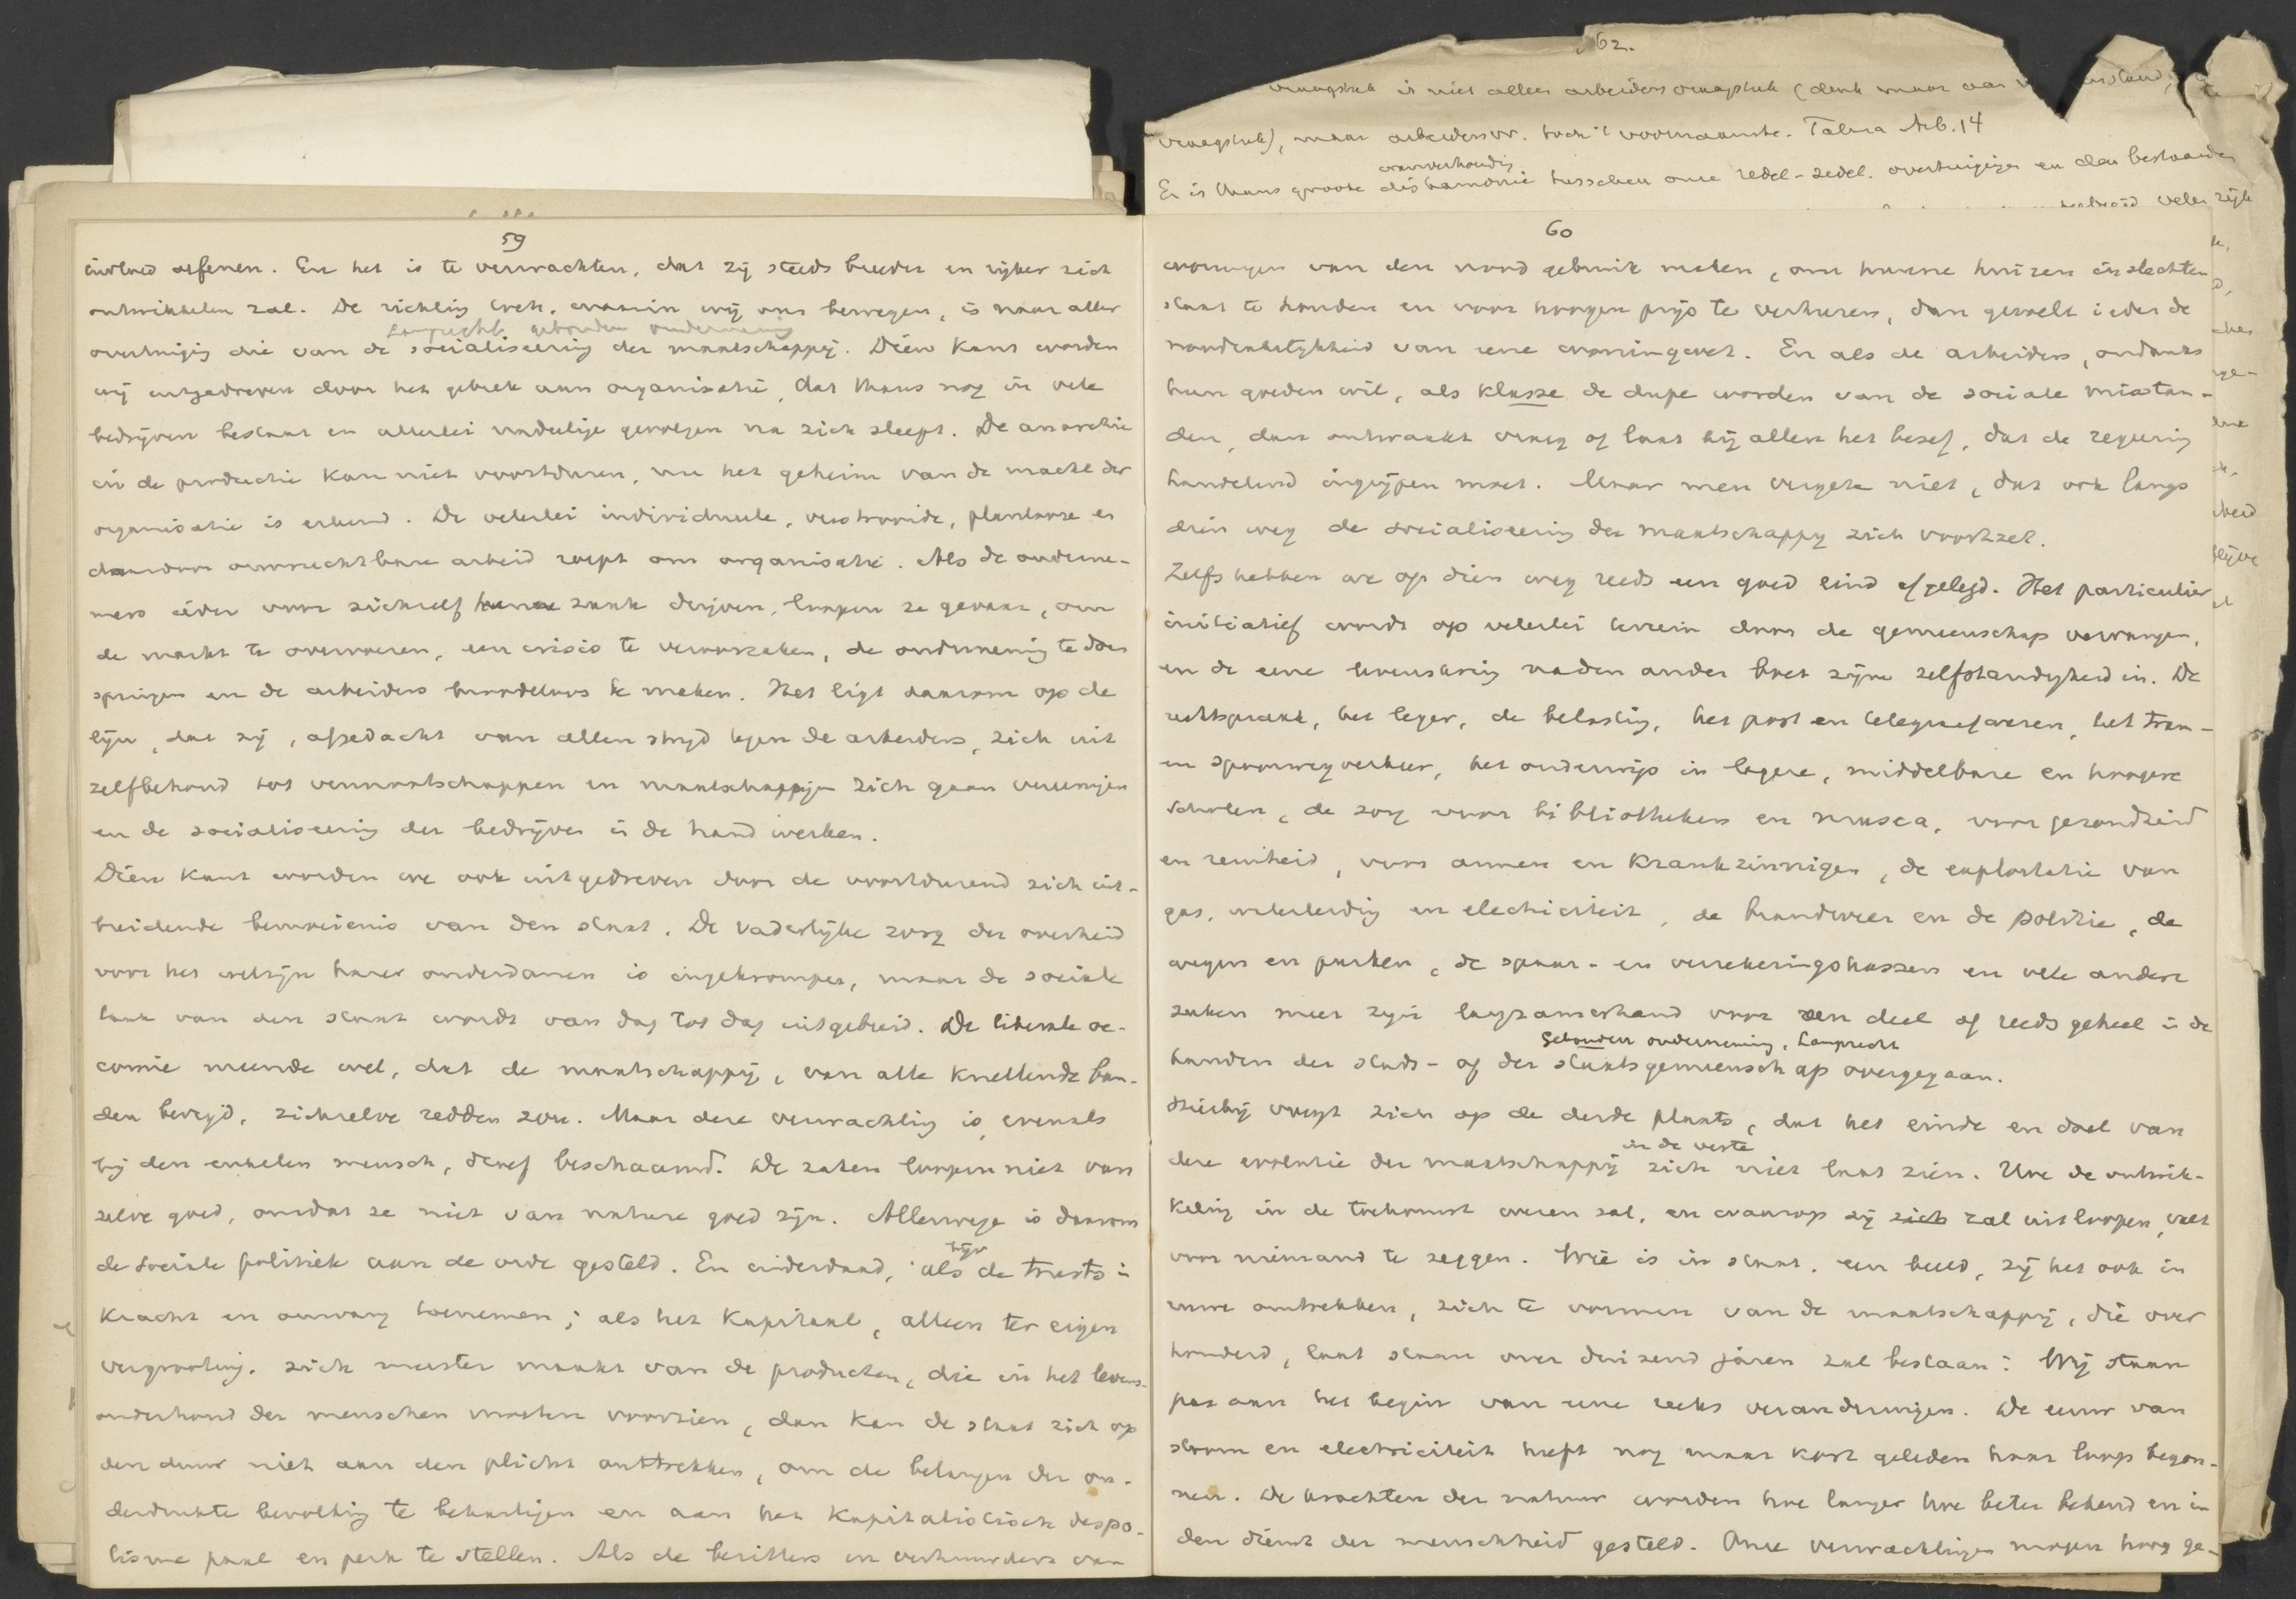 62.
vraagstuk is niet alleen arbeidersvraagstuk (denk maar aan
vraagstuk), maar arbeidersvr. toch 't voornaamste. Talma Arb. 14
wanverhoudig
Er is thans groote disharmonie tusschen onze redel-zedel. overtuigigen en den bestaanden
59
invloed oefenen. En het is te verwachten, dat zij steeds breeder en rijker zich
ontwikkelen zal. De richtig toch, waarin wij ons bewegen, is naar aller
Lamprecht gebonden onderneming
overtuigig die van de socialiseering der maatschappij. Dien kant worden
wij uitgedreven door het gebrek aan organisatie, dat thans nog in vele
bedrijven bestaat en allerlei nadeelige gevolgen na zich sleept. De anarchie
in de productie kan niet voortduren, nu het geheim van de macht der
organisatie is erkend. De velerlei individueele, verstrooide, planlooze en
daardoor onvruchtbare arbeid roept om organisatie. Als de onderne-
mers ieder voor zichzelf hunne zaak drijven, loopen ze gevaar, om
de markt te overvoeren, een crisis te veroorzaken, de onderneming te doen
springen en de arbeiders broodeloos te maken. Het ligt daarom op de
lijn, dat zij, afgedacht van allen strijd tegen de arbeiders, zich uit
zelfbehoud tot vennootschappen en maatschappijen zich gaan vereenigen
en de socialiseering der bedrijven in de hand werken.
Dien kant worden we ook uitgedreven door de voortdurend zich uit-
breidende bemoeienis van den staat. De vaderlijke zorg der overheid
voor het welzijn harer onderdanen is ingekrompen, maar de sociale
taak van den staat wordt van dag tot dag uitgebreid. De liberale oe-
comie meende wel, dat de maatschappij, van alle knellende ban-
den bevrijd, zichzelve redden zou. Maar deze verwachtig is, evenals
bij den enkelen mensch, deerlijk beschaamd. De zaken loopen niet van
zelve goed, omdat ze niet van nature goed zijn. Allerwege is daarom
de sociale politiek aan de orde gesteld. En inderdaad, als de trusts in
kracht en omvang toenemen; als het kapitaal, alleen ter eigen
vergrooting, zich meester maakt van de producten, die in het levens-
onderhoud der menschen moeten voorzien, dan kan de staat zich op
den duur niet aan den plicht onttrekken, om de belangen der on-
derdrukte bevolking te behartigen en aan het kapitalistisch despo-
tisme paal en perk te stellen. Als de bezitters en verhuurders van
60
woningen van den nood gebruik maken, om hunne huizen in slechten
staat te houden en voor hoogen prijs te verhuren, dan gevoelt ieder de
noodzakelijkheid van eene woningwet. En als de arbeiders, ondanks
hun goeden wil, als klasse de dupe worden van de sociale misstan-
den, dan ontwaakt vroeg of laat bij allen het besef, dat de regeering
handelend ingrijpen moet. Maar men vergete niet, dat ook langs
dien weg de socialiseering der maatschappij zich voortzet.
Zelfs hebben we op dien weg reeds een goed eind afgelegd. Het particulier
initiatief wordt op velerlei terrein door de gemeenschap vervangen,
en de eene levenskring na den ander boet zijne zelfstandigheid in. De
rechtspraak, het leger, de belasting, het post en telegraafwezen, het tram-
en spoorwegverkeer, het onderwijs in lagere, middelbare en hoogere
scholen, de zorg voor bibliotheken en musea, voor gezondheid
en reinheid, voor armen en krankzinnigen, de exploitatie van
gas, waterleidig en electriciteit, de brandweer en de politie, de
wegen en parken, de spaar- en verzekeringskassen en vele andere
zaken meer zijn langzamerhand voor een deel of reeds geheel in de
gebonden onderneming, Lamprecht
handen der stads- of der staatsgemeenschap overgegaan.
Hierbij voegt zich op de derde plaats, dat het einde en doel van
in de verte
deze evolutie der maatschappij zich niet laat zien. Hoe de ontwik-
keling in de toekomst wezen zal, en waarop zij zich zal uitloopen, valt
voor niemand te zeggen. Wie is in staat, een beeld, zij het ook in
ruwe omtrekken, zich te vormen van de maatschappij, die over
honderd, laat staan over duizend jaren zal bestaan? Wij staan
pas aan het begin van eene reeks veranderingen. De eeuw van
stoom en electriciteit heeft nog maar kort geleden haar loop begon-
nen. De krachten der natuur worden hoe langer hoe beter bekend en in
den dienst der menschheid gesteld. Onze verwachtingen mogen hoog ge-